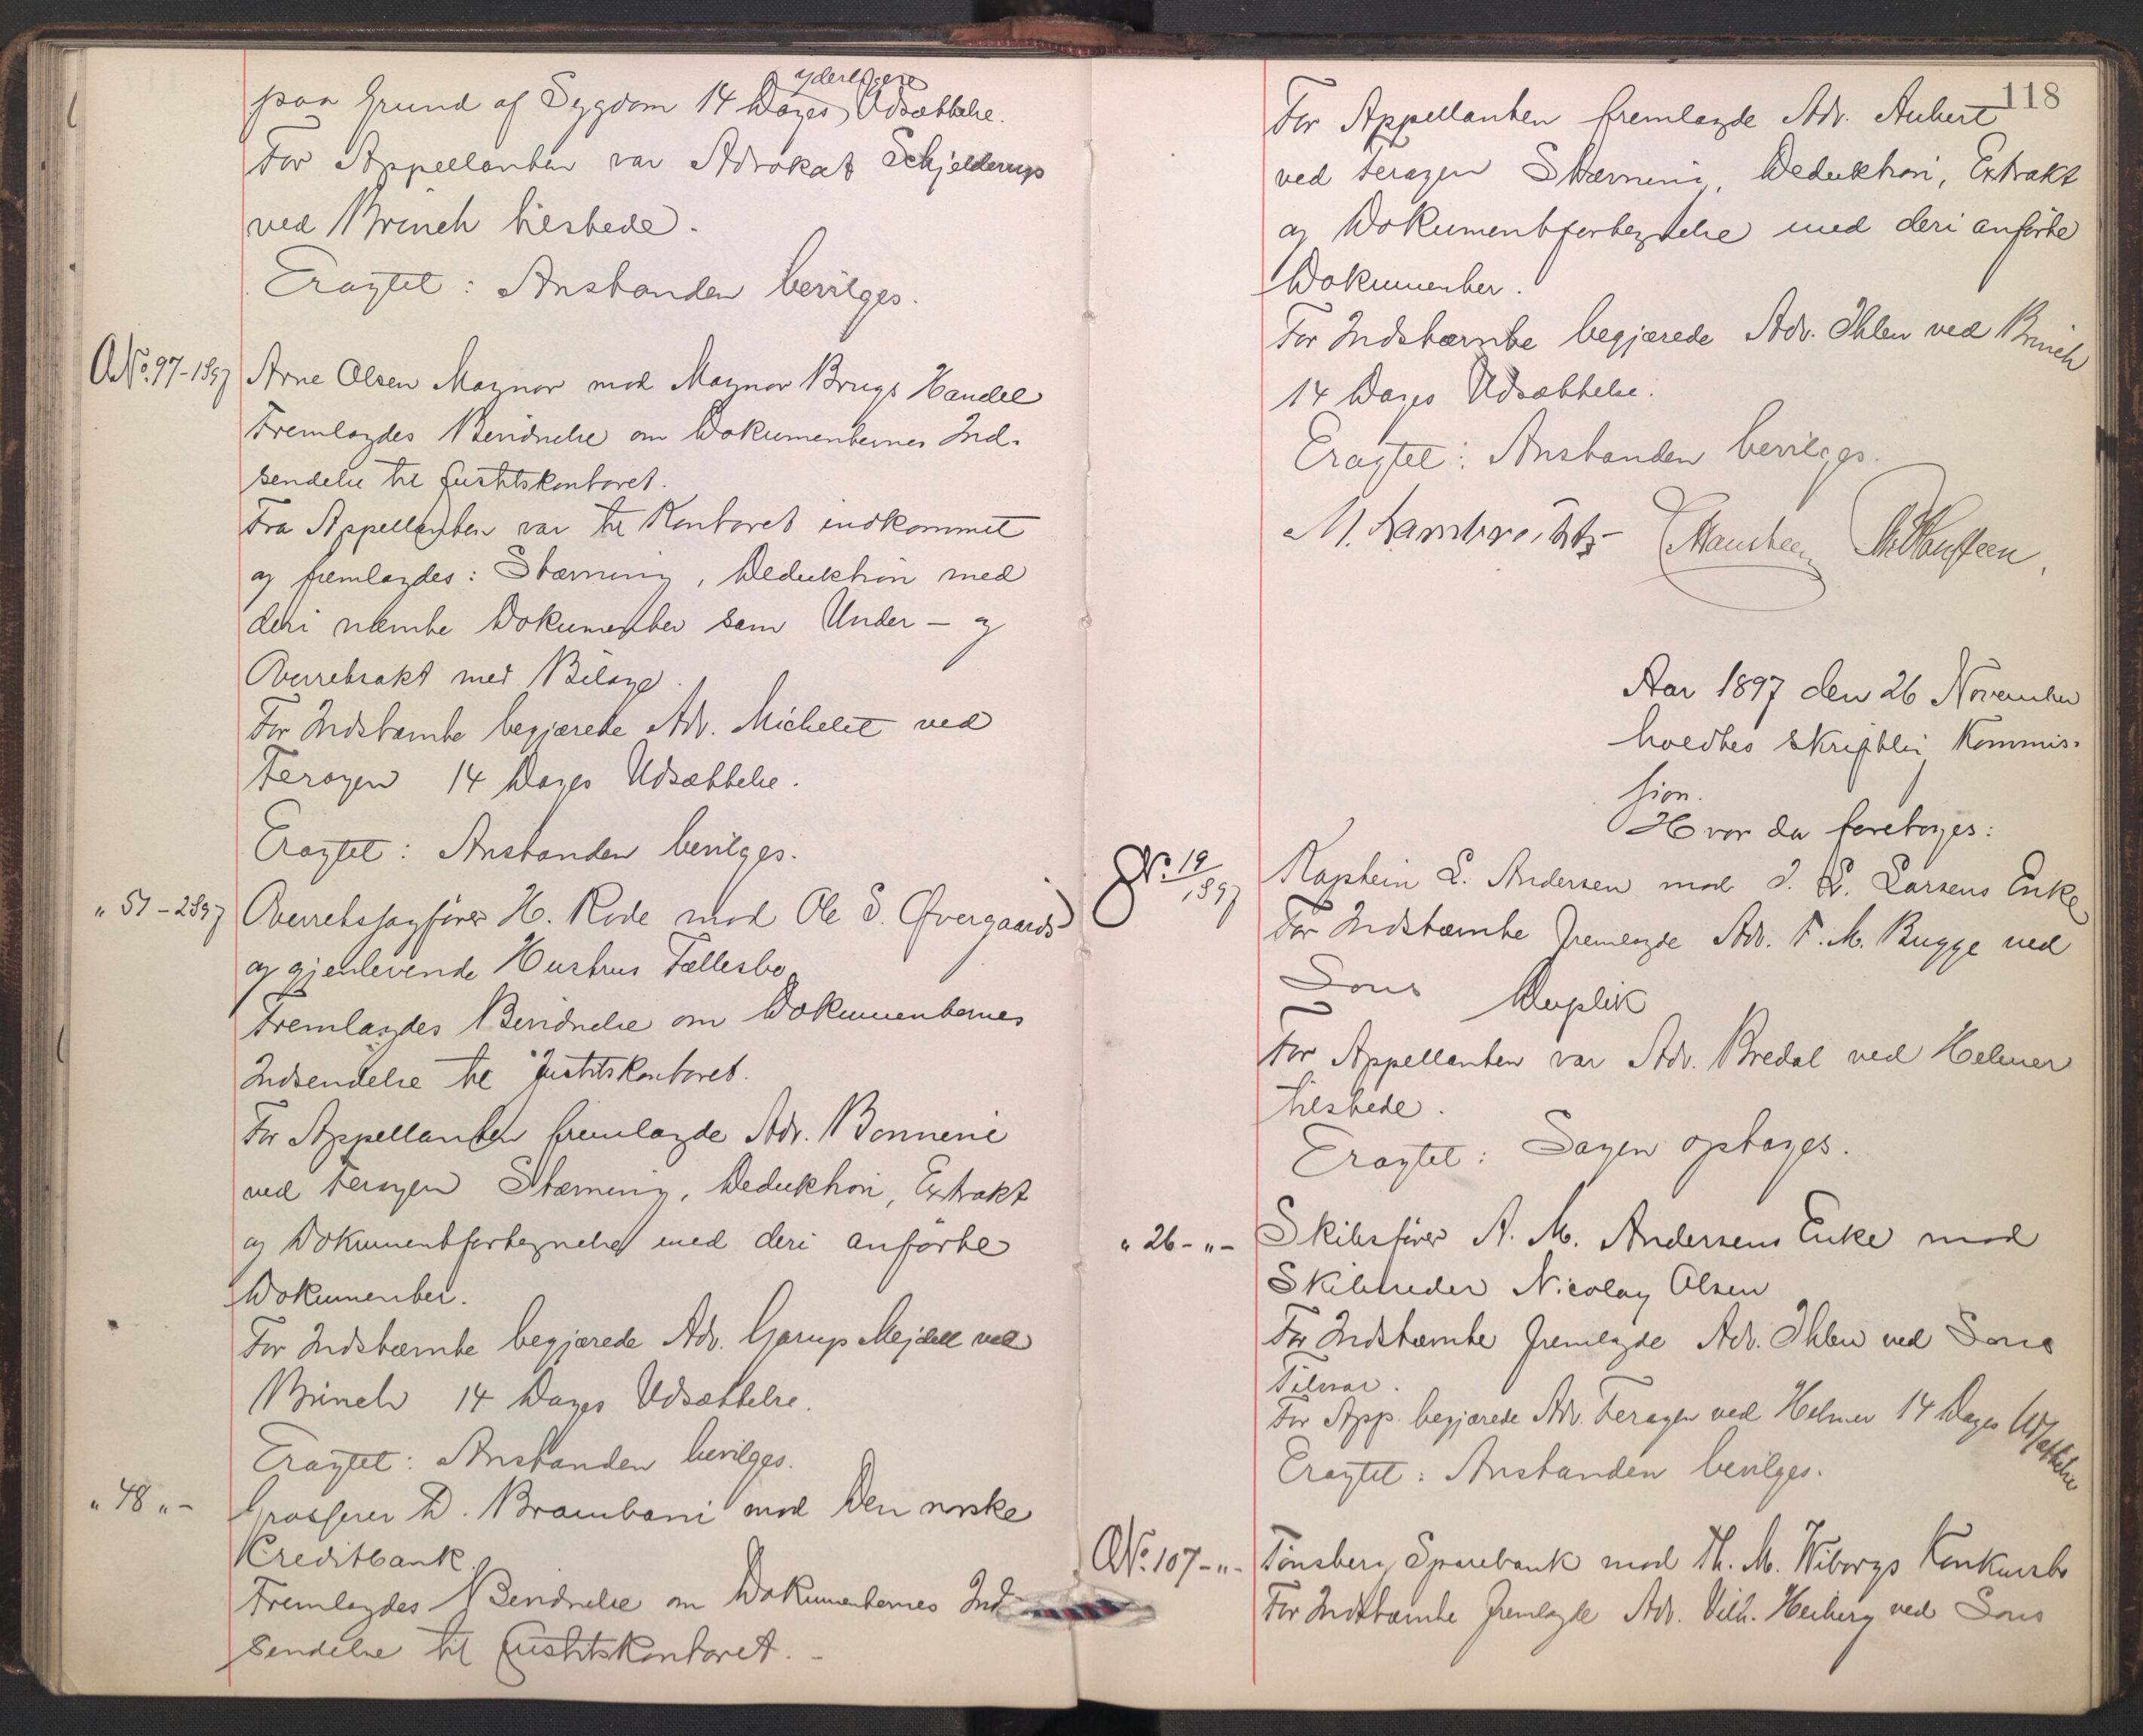 paa Grund af Sygdom 14 Dages yderligere Udsættelse.
For Appellanten var Advokat Schjelderup
ved Brinch tilstede.
Eragtet: Anstanden bevilges.
A No. 97-1897 Arne Olsen Magnor mod Magnor Brugs Handel
Fremlagdes Bevidnelse om Dokumenternes Ind-
sendelse til Justitskontoret.
Fra Appellanten var til Kontoret indkommet
og fremlagdes: Stævning, Deduktion med
deri nævnte Dokumenter som Under- og
Overretsakt med Bilage.
For Indstævnte begjærede Adv. Michelet ved
Feragen 14 Dages Udsættelse.
Eragtet: Anstanden bevilges.
" 51-2897 Overretssagfører H. Rode mod Ole S. Øvergaards
og gjenlevende Hustrus Fællesbo
Fremlagdes Bevidnelse om Dokumenternes
Indsendelse til Justitskontoret.
For Appellanten fremlagde Adv. Bonnevie
ved Feragen Stævning, Deduktion, Extrakt
og Dokumentfortegnelse med deri anførte
Dokumenter.
For Indstævnte begjærede Adv. Gørup Mejdell ved
Brinch 14 Dages Udsættelse.
Eragtet: Anstanden bevilges.
" 48 " - Grosserer D. Brambani mod Den norske
Creditbank.
Fremlagdes Bevidnelse om Dokumenternes Ind
sendelse til Justitskontoret. -
118
For Appellanten fremlagde Adv. Aubert
ved Feragen Stævning, Deduktion, Extrakt
og Dokumentfortegnelse med deri anførte
Dokumenter.
For Indstævnte begjærede Adv. Ihlen ved Brinch
14 Dages Udsættelse.
Eragtet: Anstanden bevilges.
M. Lambrechts
Aar 1897 den 26 November
holdtes skriftlig Kommis-
sion.
Hvor da foretoges:
No. 19/1897 Kaptein L. Andersen mod J. L. Larsens Enke
For Indstævnte fremlagde Adv. F. M. Bugge ved
Duplik
For Appellanten var Adv. Bredal ved Helmer
tilstede.
Eragtet: Sagen optages.
" 26 - " - Skibsfører A. M. Andersens Enke mod
Skibsreder Nicolay Olsen
For Indstævnte fremlagde Adv. Ihlen ved
Tilsvar.
For App. begjærede Adv. Feragen ved Helmer 14 Dages Udsættelse
Eragtet: Anstanden bevilges.
A No. 107 - " - Tønsberg Sparebank mod Th. M. Wiborgs Konkursbo
For Indstævnte fremlagde Adv. Vilh. Heiberg ved